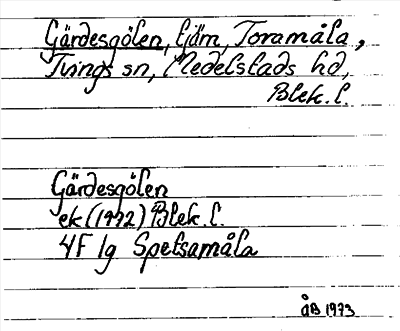 Gärdesgölen, tjäm, Toramåla,
Tvings sn, Medelstads hd,
Blek.l.
Gärdesgölen
ek (1972) Blek.l.
4F 1g Spetsamåla
ÅB 1973